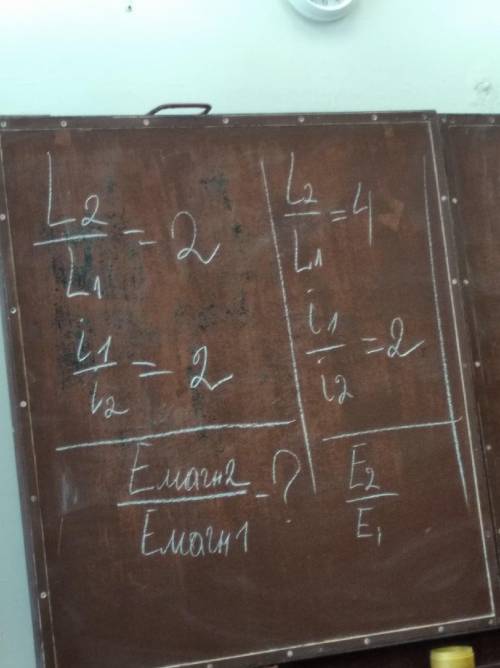 L2/L1 = 2
i1/i2 = 2
Eмагн2/Eмагн1 - ?
L2/L1 = 4
i1/i2 = 2
E2/E1